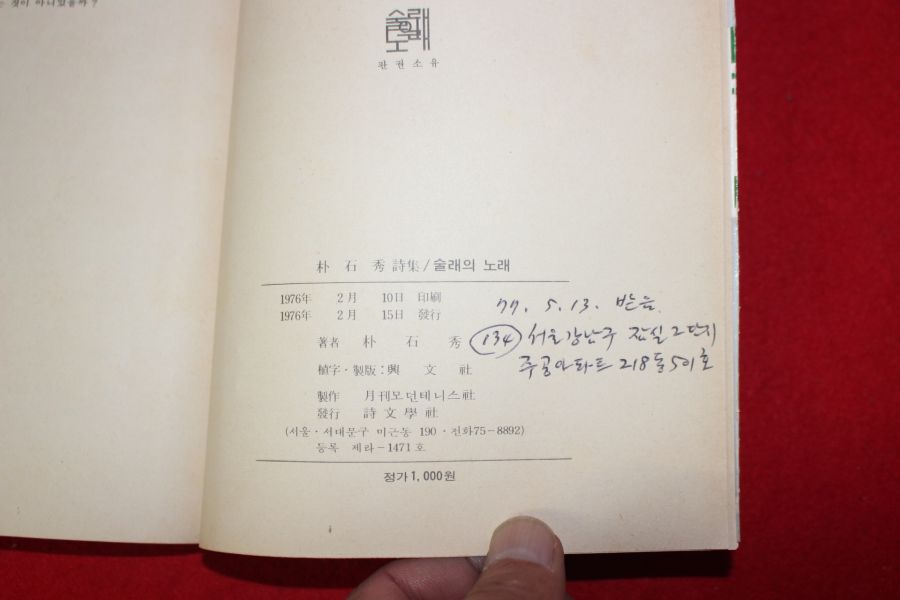 는 것이 아니었을까?
술래의노래
판권소유
朴 石 秀 詩集/술래의 노래
1976年 2月 10日 印刷
1976年 2月 15日 發行
著者 朴 石 秀
植字·製版: 興 文 社
製作 月刊모던테니스社
發行 詩文學社
(서울·서대문구 미근동 190·전화75-8892)
등록 제라-1471호
정가 1,000원
77. 5. 13. 받음.
134 서울강남구 잠실2단지
주공아파트 218동501호